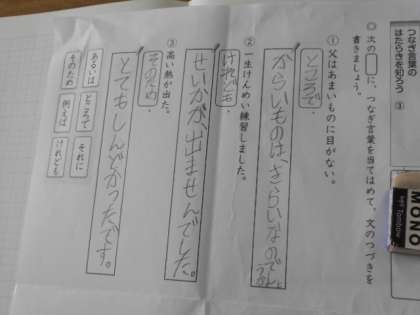 つなぎ言葉の
はたらきを知ろう ③
◎次の□に、つなぎ言葉を当てはめて、文のつづきを
書きましょう。
① 父はあまいものに目がない。
ところで、
からいものは、きらいなの
② 一生けんめい練習しました。
けれども、
せいかが、出ませんでした。
③ 高い熱が出た。
そのため、
とてもしんどかったです。
あるいは ところで それに
そのため 例えば けれども
MONO
Tombow